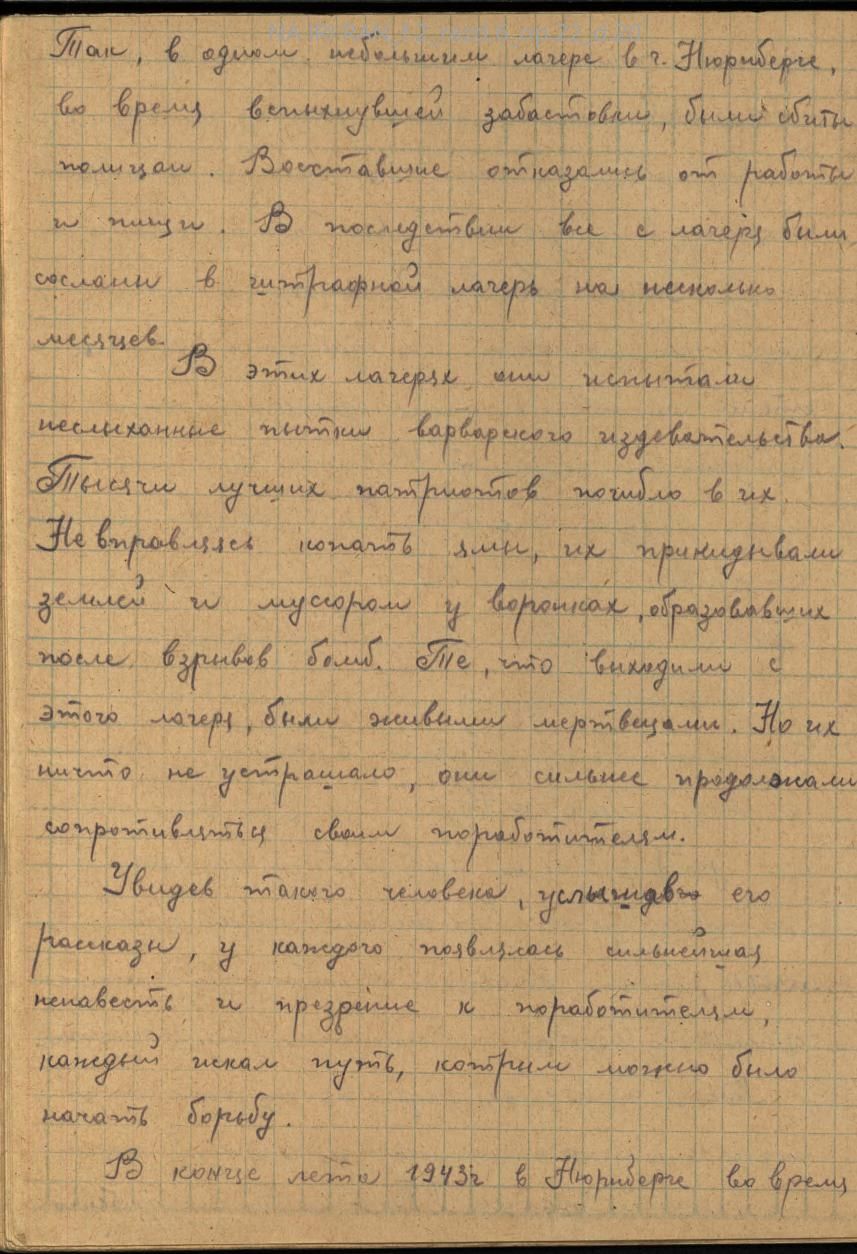 Так, в одном небольшим лагере в г. Нюрнберге,
во время вспыхнувшей забастовки, были сбиты
полицаи. Восставшие отказались от работы
и пищи. В последствии все с лагеря были
сосланы в штрафной лагерь на несколько
месяцев.
В этих лагерях они испытали
неслыханные пытки варварского издевательства.
Тысячи лучших патриотов погибло в их.
Не вправляясь копать ямы, их прикидывали
землей и мусором у воронках, образовавших
после взрывов бомб. Те, что виходили с
этого лагеря, были живыми мертвецами. Но их
ничто не устрашало, они сильнее продолжали
сопротивляться своим поработителям.
Увидев такого человека, услышав его
рассказы, у каждого появлялась сильнейшая
ненавесть и презрение к поработителям,
каждый искал путь, котрым можно было
начать борьбу.
В конце лета 1943г в Нюрнберге во время